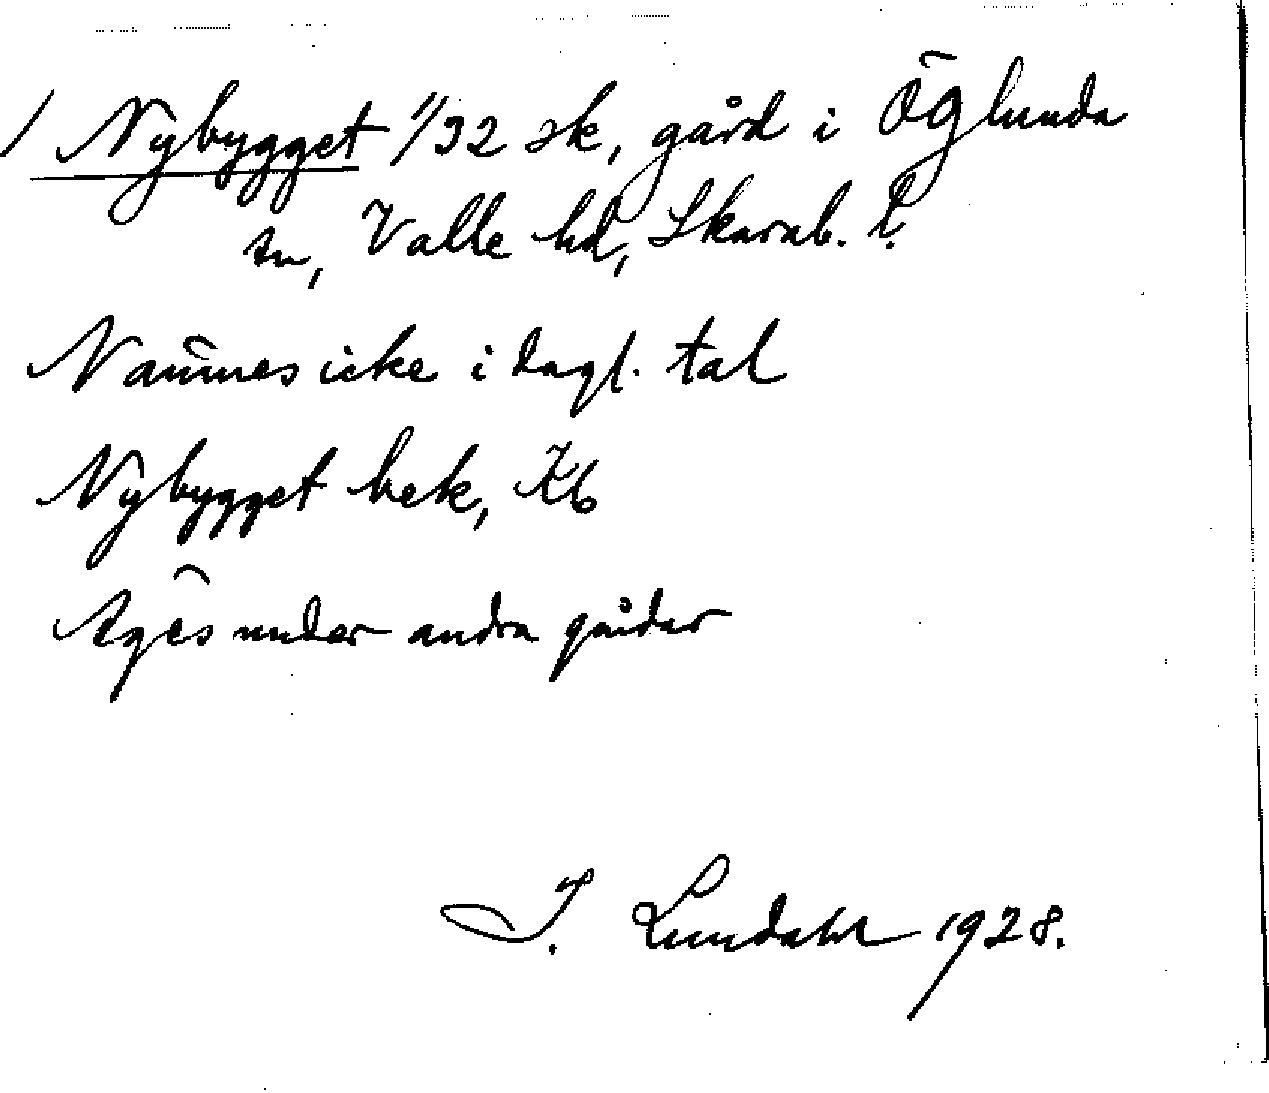 / Nybygget 1/32 sk, gård i Öglunda
sn, Valle hd, Skarab. l.
Nämnes icke i dagl. tal
Nybygget bek, Kb
Äges under andra gårdar
I. Lundahl 1928.